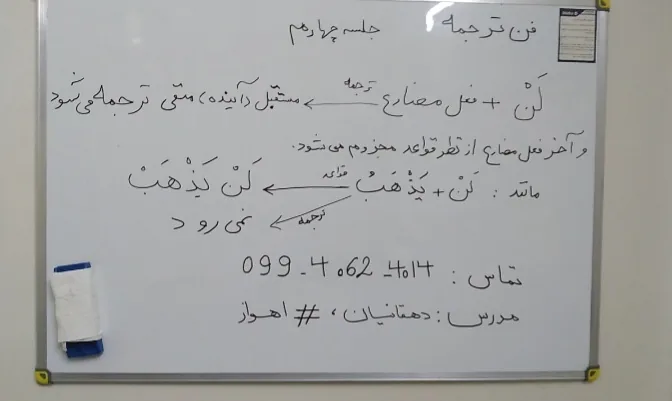 فن ترجمه جلسه چهارم
لَنْ + فعل مضارع ترجمه ← مستقبل (آینده) منفی ترجمه می‌شود
و آخر فعل مضارع از نظر قواعد مجزوم می‌شود.
مانند : لَنْ + یَذْهَبُ قواعد ← لَنْ یَذْهَبْ
ترجمه ← نمی رود
تماس : 099-4062-4014
مدرس : دهقانیان ، # اهواز